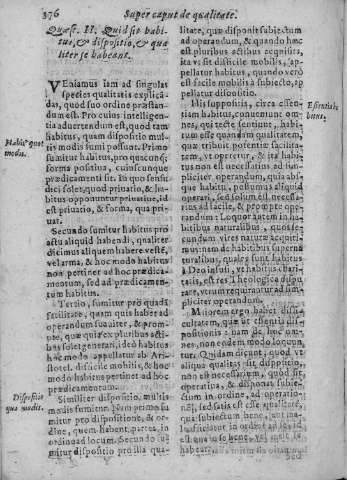 376 Super caput de qualitate.
Quæst. II. Quid sit habi-
tus, & dispositio, & qua
liter se habeant.
VEniamus iam ad singulas
species qualitatis explicã-
das, quod suo ordine præstan-
dum est. Pro cuius intelligen-
tia aduertendum est, quod tam
habitus, quam dispositio mul-
tis modis sumi possunt. Primo
Habitꝰ quot
modis.
sumitur habitus, pro quacunq;
forma positiua, cuiuscunque
prædicamenti sit. In quo sensu
dici solet, quod priuatio, & ha-
bitus opponuntur priuatiue, id
est priuatio, & forma, qua pri-
uat.
Secundo sumitur habitus pro
actu aliquid habendi, qualiter
dicimus aliquem habere vestẽ,
vel arma, & hoc modo habitus
non pertinet ad hoc prædica-
mentum, sed ad prædicamen-
tum habitus.
Tertio, sumitur pro quadã
facilitate, quam quis habet ad
operandum suauiter, & prom-
pte, quæ quia ex pluribus acti-
bus solet generari, ideò habitus
hoc modo appellatur ab Ari-
stotel. difficile mobilis, & hoc
modo habitus pertinet ad hoc
prædicamentum.
Dispositio
quo modis.
Similiter dispositio, multis
modis sumitur. Primo
pro dispositione, & or-
dine, quem habent partes, in
ordine ad locum. Secundo su-
mitur dispositio pro qualita-
litate, quæ disponit subiectum
ad operandum, & quando hæc
est pluribus actibus acquisita,
ita vt sit difficile mobilis, ap-
pellatur habitus, quando verò
est facile mobilis subiecto, ap-
pellatur dispositio.
His suppositis, circa essen-
Essentia ha
bitus.
tiam habitus, conueniunt om-
nes, qui rectè sentiunt, habi-
tum esse quandam qualitatem,
quæ tribuit potentiæ facilita-
tem, vt operetur, & ita habi-
tus non est necessarius ad sim-
pliciter operandum, quia abs-
que habitu, possumus aliquid
operari, sed solum est necessa-
rius ad facile, & promptè ope-
randum: Loquor autem in ha-
bitibus naturalibus, quos se-
cundum vires naturæ acquiri-
mus: nam de habitibus superna
turalibus, quales sunt habitus
à Deo infusi, vt habitus chari-
tatis, est res Theologica dispu
tare, vtrum requirantur ad sim-
pliciter operandum.
Maiorem ergo habet diffi-
cultatem, quæ sit essentia dis-
positionis: nam de hoc om-
nes, non eodem modo loquun-
tur. Quidam dicunt, quod vt
aliqua qualitas sit dispositio,
non est necessarium, quod sit
operatiua, & disponat subie-
ctum, in ordine ad operatio-
nem, sed satis est